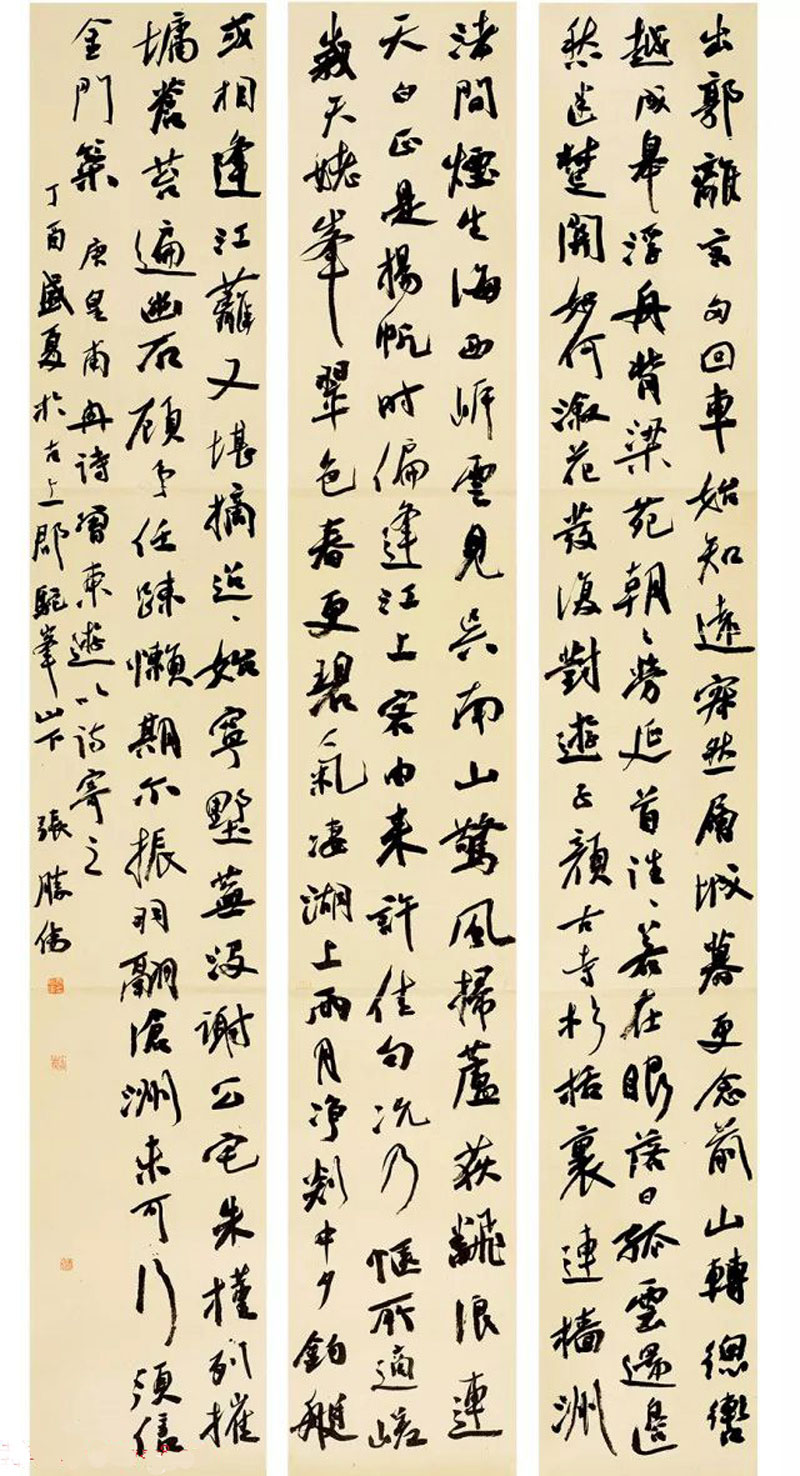 出郭離言多回車始知遠寂然層城暮更念前山轉總轡
越成皋浮舟背梁苑朝〻勞延首往〻若在眼落日孤雲還邊
愁迷楚關如何溆花發復對遊子顏古寺杉栝裏連檣洲
渚間煙生海西岸雲見吳南山驚風掃蘆荻飜浪連
天白正是揚帆時偏逢江上客由來許佳句況乃愜所適嵯
峨天姥峯翠色春更碧氣淒湖上雨月淨剡中夕釣艇
或相逢江蘺又堪摘迢〻始寧墅蕪沒謝公宅朱槿列摧
墉蒼苔遍幽石顧予任疎懶期爾振羽翮滄洲未可行須售
金門策 唐皇甫冉詩曾東遊以詩寄之
丁酉盛夏於古上郡駝峯山下 張勝偉